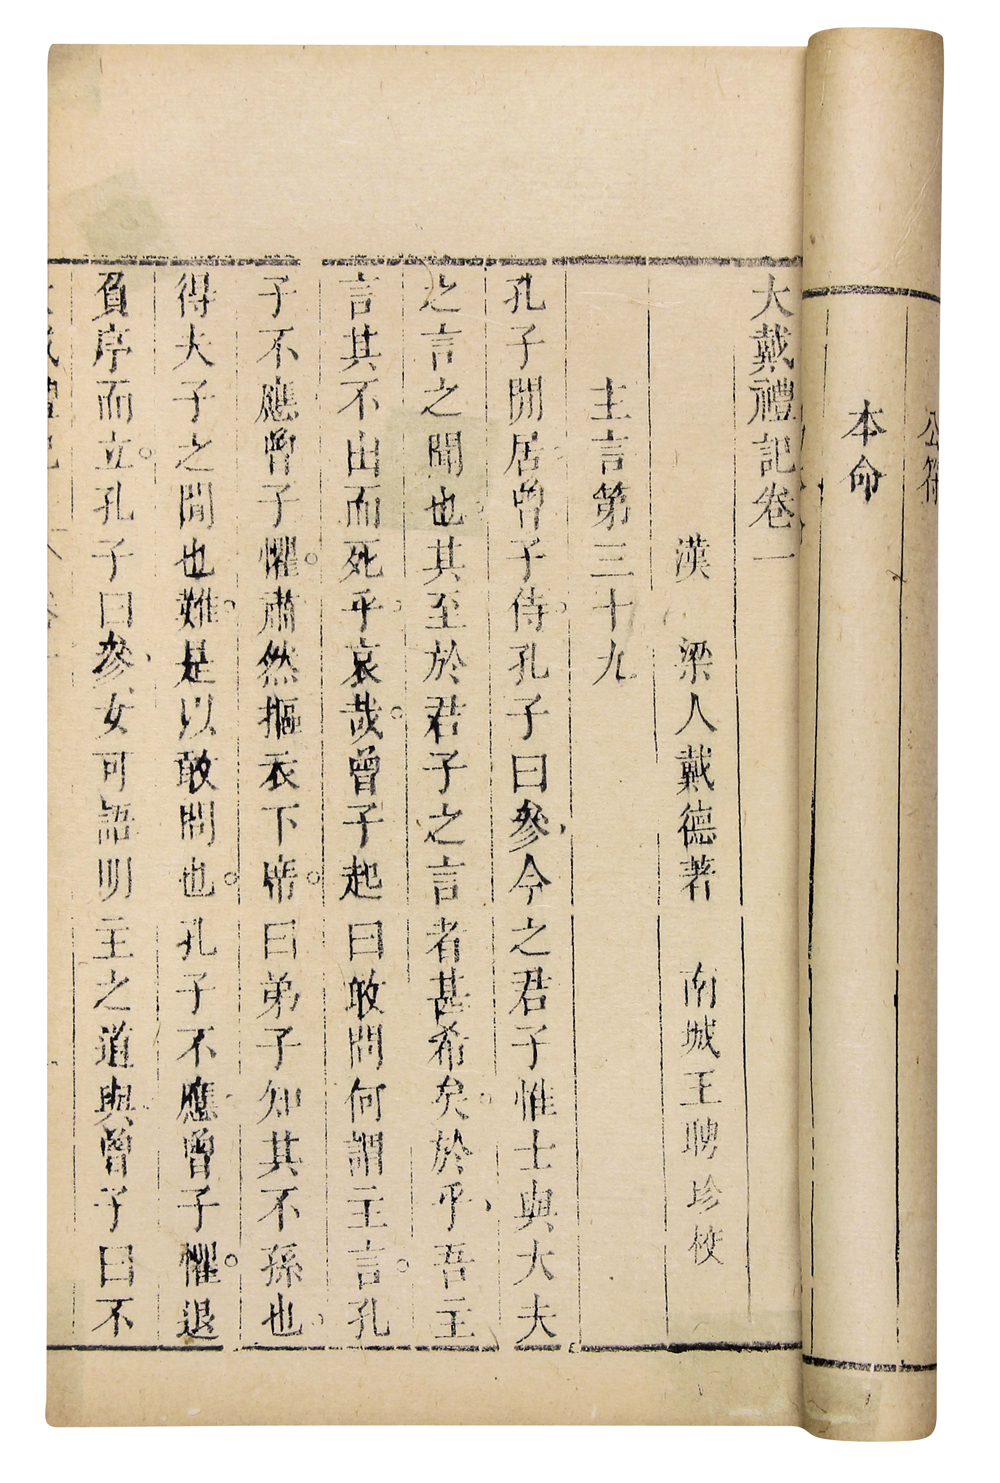 公符
本命
大戴禮記卷一
漢 梁人戴德著 南城王聘珍校
主言第三十九
孔子閒居曾子侍孔子曰參今之君子惟士與大夫
之言之聞也其至於君子之言者甚希矣於乎吾主
言其不出而死乎哀哉曾子起曰敢問何謂主言孔
子不應曾子懼肅然摳衣下席曰弟子知其不孫也
得夫子之閒也難是以敢問也孔子不應曾子懼退
負序而立孔子曰參女可語明主之道與曾子曰不